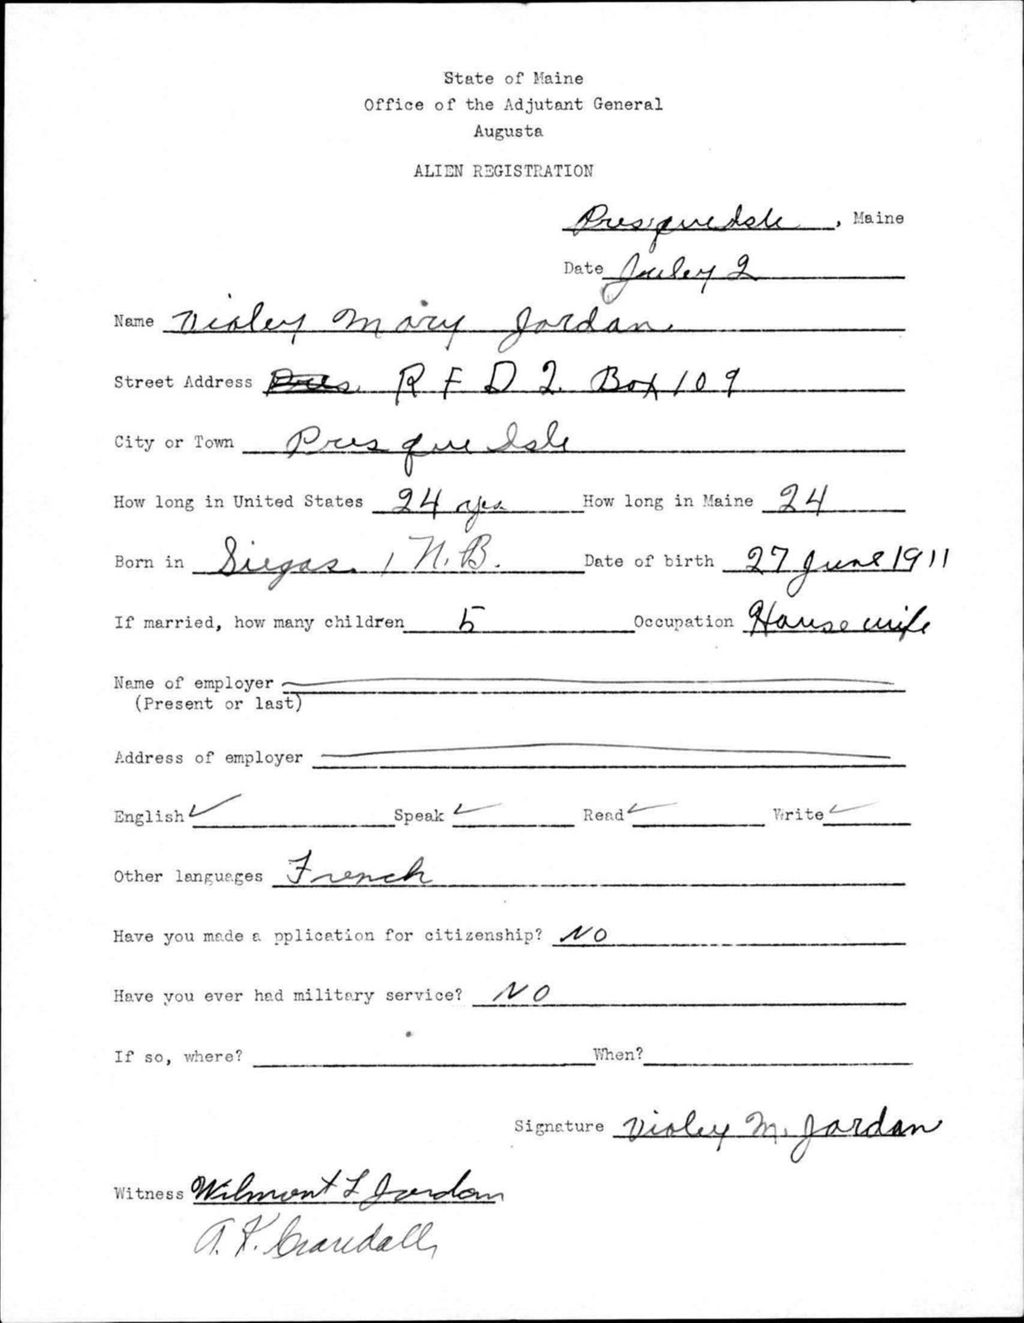 State of Maine
Office of the Adjutant General
Augusta
ALIEN REGISTRATION
Presque Isle, Maine
Date Juley 2
Name Violey Mary Jordan.
Street Address Pres. R F D 2. Box 109
City or Town Presque Isle
How long in United States 24 yrs How long in Maine 24
Born in Siegas. N.B. Date of birth 27 June 1911
If married, how many children 5 Occupation House wife
Name of employer
(Present or last)
Address of employer
English ✓ Speak ✓ Read ✓ Write ✓
Other languages French
Have you made a pplication for citizenship? NO
Have you ever had military service? NO
If so, where? When?
Signature Violey M. Jordan
Witness Wilmont L Jordan
A. K. Crandall